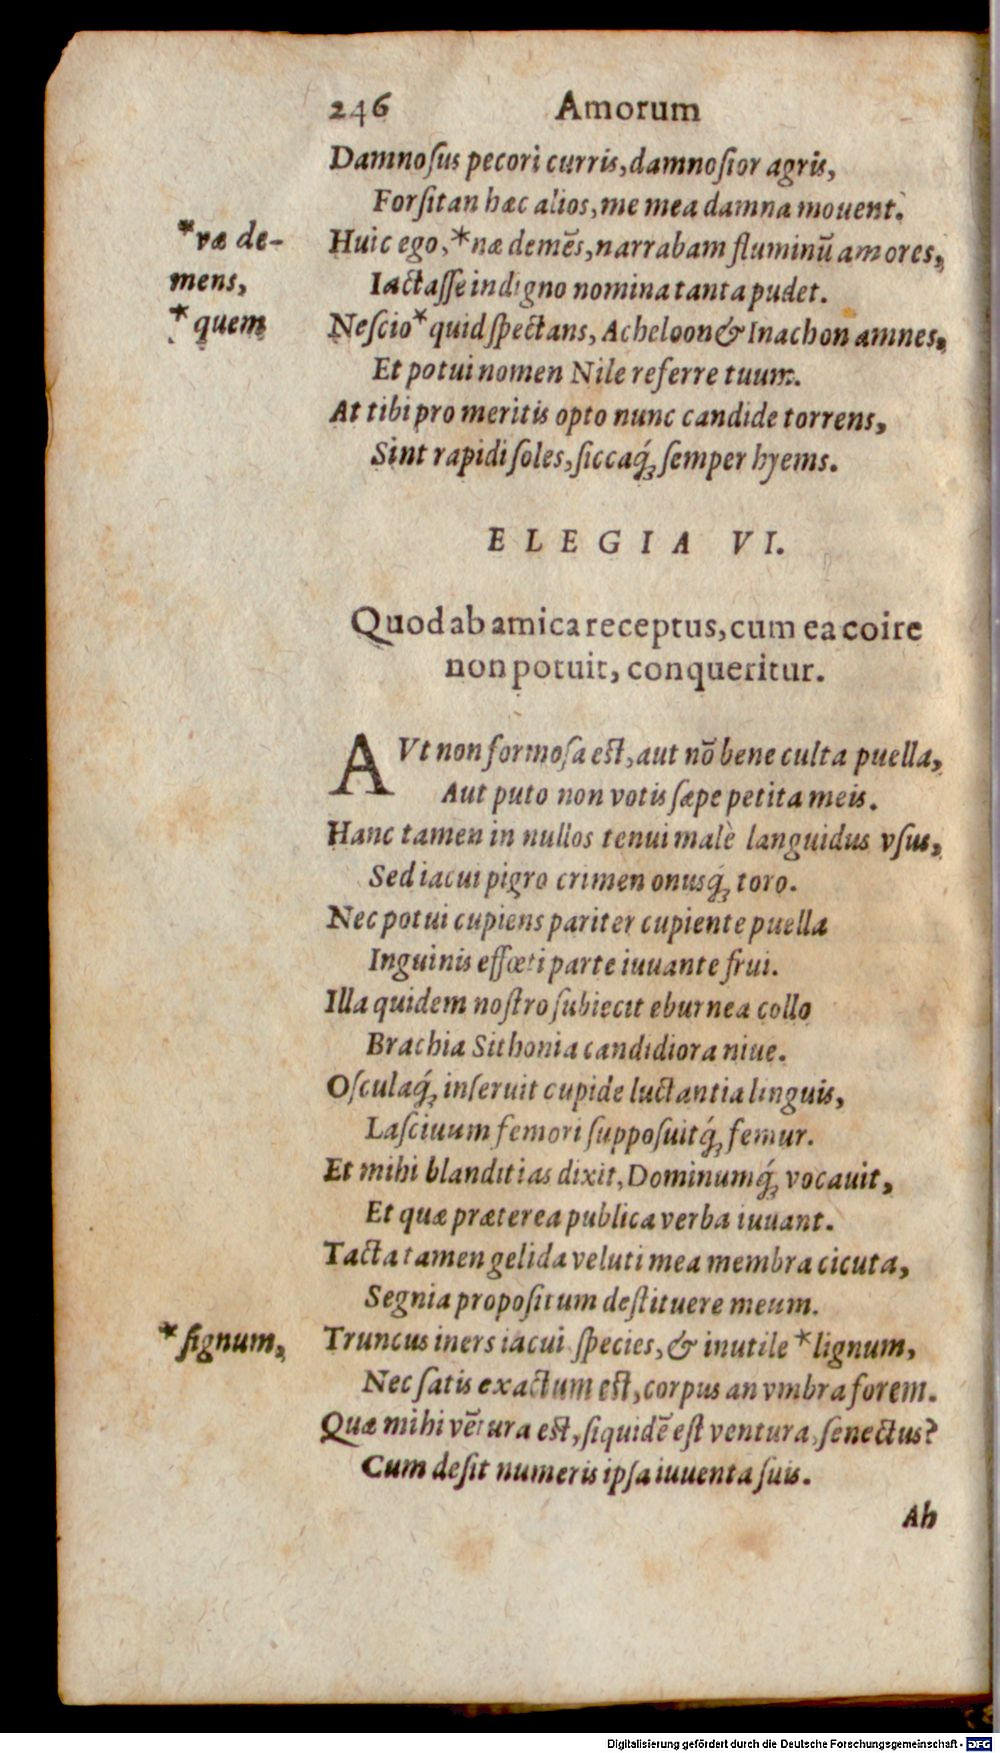 246 Amorum
Damnoſus pecori curris, damnoſior agris,
Forſitan hæc alios, me mea damna mouent.
*væ de-
mens,
Huic ego, *næ demẽs, narrabam fluminũ amores,
Iactaſſe indigno nomina tanta pudet.
*quem
Neſcio *quid ſpectans, Acheloon & Inachon amnes,
Et potui nomen Nile referre tuum.
At tibi pro meritis opto nunc candide torrens,
Sint rapidi ſoles, ſiccaq́; ſemper hyems.
ELEGIA VI.
Quod ab amica receptus, cum ea coire
non potuit, conqueritur.
AVt non formoſa eſt, aut nõ bene culta puella,
Aut puto non votis ſæpe petita meis.
Hanc tamen in nullos tenui malè languidus vſus,
Sed iacui pigro crimen onusq́; toro.
Nec potui cupiens pariter cupiente puella
Inguinis effœti parte iuuante frui.
Illa quidem noſtro ſubiecit eburnea collo
Brachia Sithonia candidiora niue.
Oſculaq́; inſeruit cupide luctantia linguis,
Laſciuum femori ſuppoſuitq́; femur.
Et mihi blanditias dixit, Dominumq́; vocauit,
Et quæ præterea publica verba iuuant.
Tacta tamen gelida veluti mea membra cicuta,
Segnia propoſitum deſtituere meum.
*ſignum,
Truncus iners iacui ſpecies, & inutile *lignum,
Nec ſatis exactum eſt, corpus an vmbra forem.
Quæ mihi vẽtura eſt, ſiquidẽ eſt ventura, ſenectus?
Cum deſit numeris ipſa iuuenta ſuis.
Ah
Digitalisierung gefördert durch die Deutsche Forschungsgemeinschaft - DFG